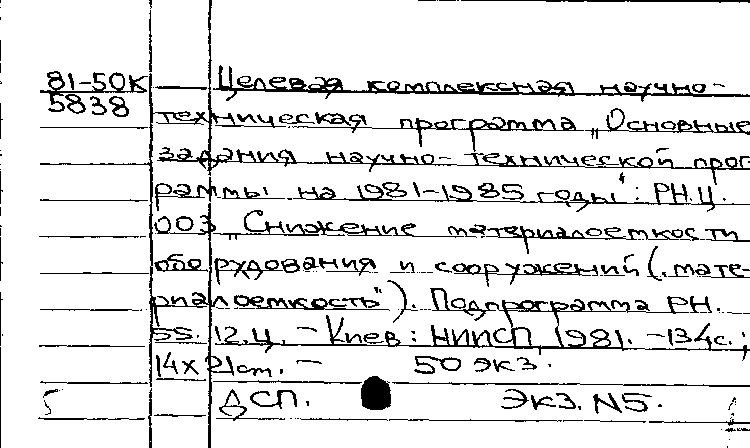 81-50К Целевая комплексная научно-
5838 техническая программа „Основные
задания научно-технической прог
раммы на 1981-1985 годы": РН.Ц.
003 „Снижение материалоемкости
оборудования и сооружений („мате-
риалоемкость"). Подпрограмма РН.
55.12.Ц. – Киев: НИИСП, 1981. – 134с.;
14х21см. – 50 экз.
5 ДСП. Экз. N5.